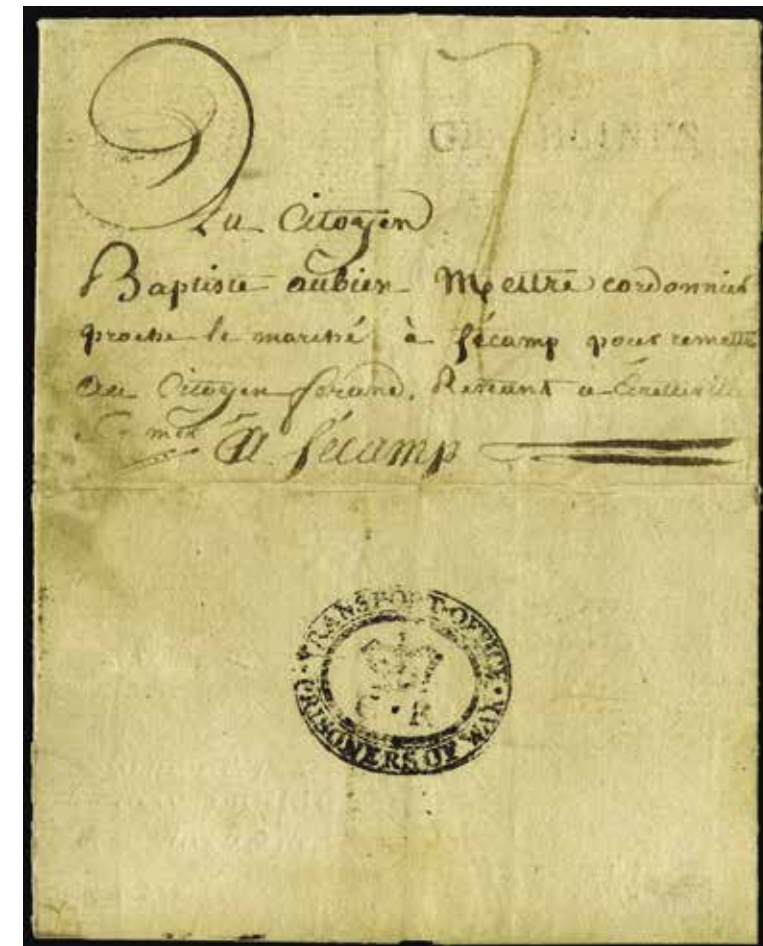 Au Citoyen
Baptiste aubien Mettre cordonnier
proche le marché à fécamp pour remettre
Au Citoyen forand, Renant a
A fécamp
TRANSPORT-OFFICE · PRISONERS OF WAR ·
G · R